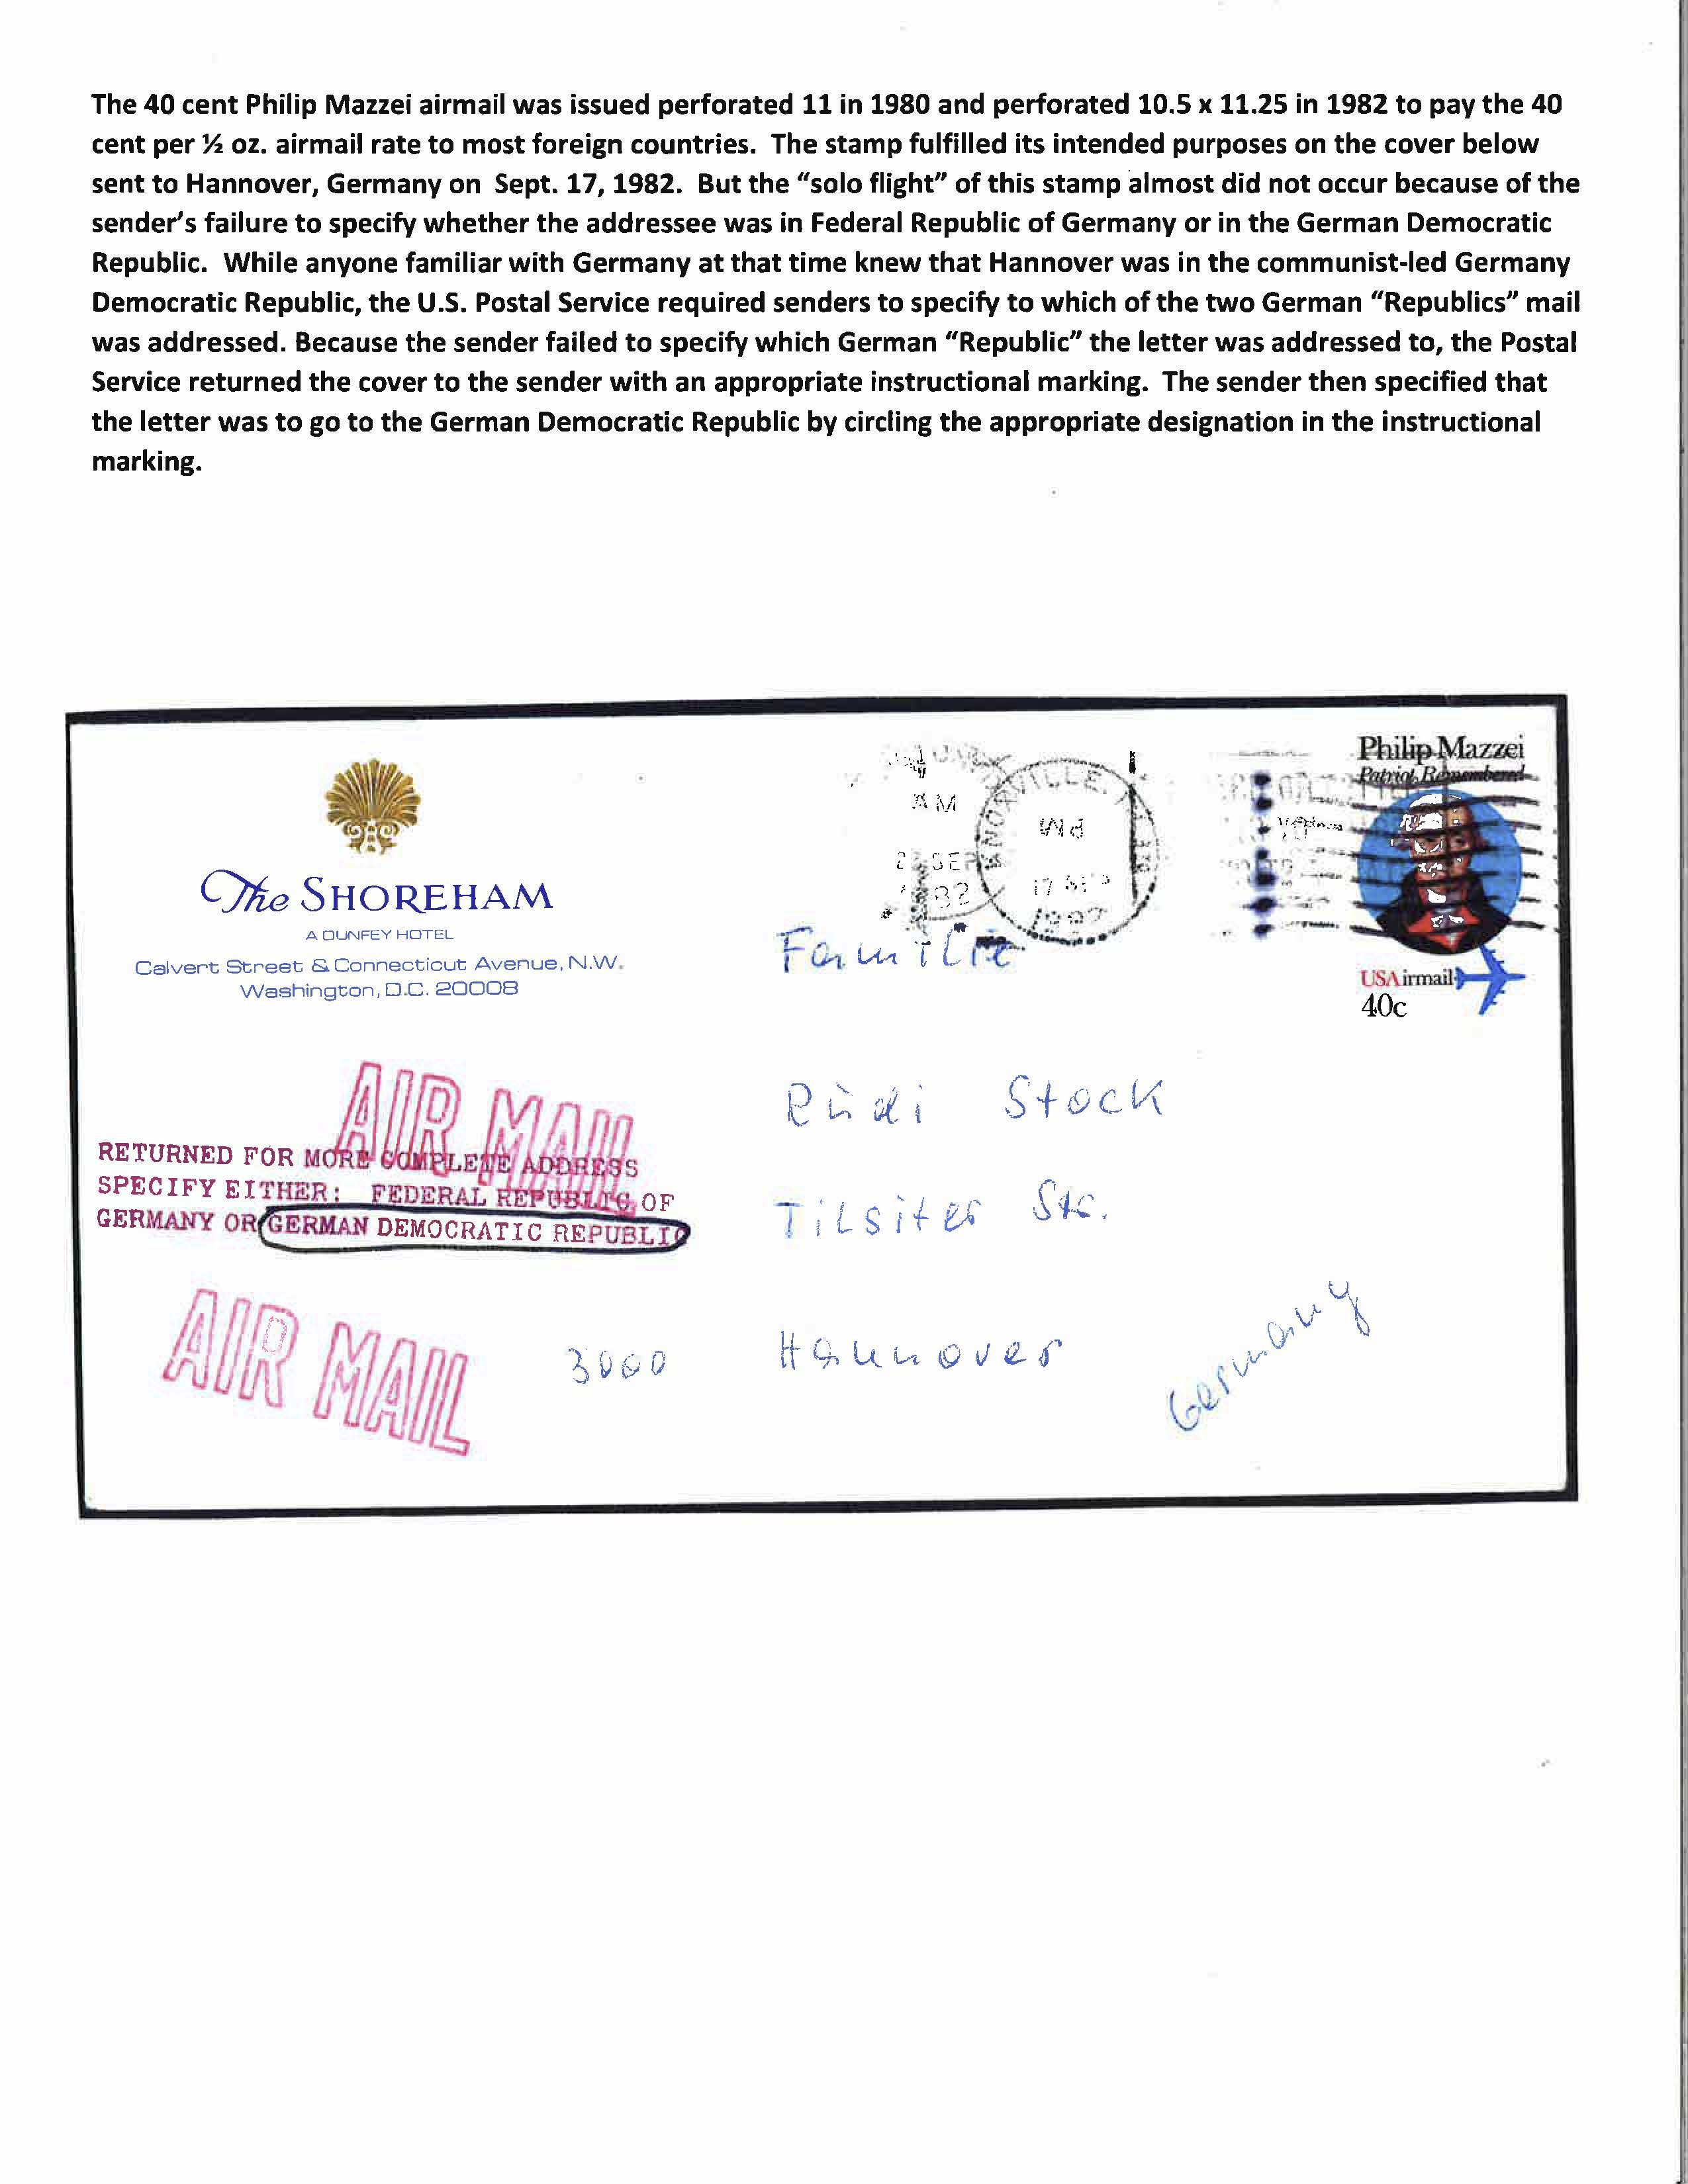 The 40 cent Philip Mazzei airmail was issued perforated 11 in 1980 and perforated 10.5 x 11.25 in 1982 to pay the 40
cent per ½ oz. airmail rate to most foreign countries.  The stamp fulfilled its intended purposes on the cover below
sent to Hannover, Germany on  Sept. 17, 1982.  But the “solo flight” of this stamp almost did not occur because of the
sender’s failure to specify whether the addressee was in Federal Republic of Germany or in the German Democratic
Republic.  While anyone familiar with Germany at that time knew that Hannover was in the communist-led Germany
Democratic Republic, the U.S. Postal Service required senders to specify to which of the two German “Republics” mail
was addressed. Because the sender failed to specify which German “Republic” the letter was addressed to, the Postal
Service returned the cover to the sender with an appropriate instructional marking.  The sender then specified that
the letter was to go to the German Democratic Republic by circling the appropriate designation in the instructional
marking.
Philip Mazzei
Patriot Remembered
USAirmail
40c
AM
PM
17 SEP
1982
The SHOREHAM
A DUNFEY HOTEL
Calvert Street & Connecticut Avenue, N.W.
Washington, D.C. 20008
Familie
Rüdi Stock
Tilsiter Str.
3000 Hannover
Germany
AIR MAIL
RETURNED FOR MORE COMPLETE ADDRESS
SPECIFY EITHER: FEDERAL REPUBLIC OF
GERMANY OR GERMAN DEMOCRATIC REPUBLIC
AIR MAIL